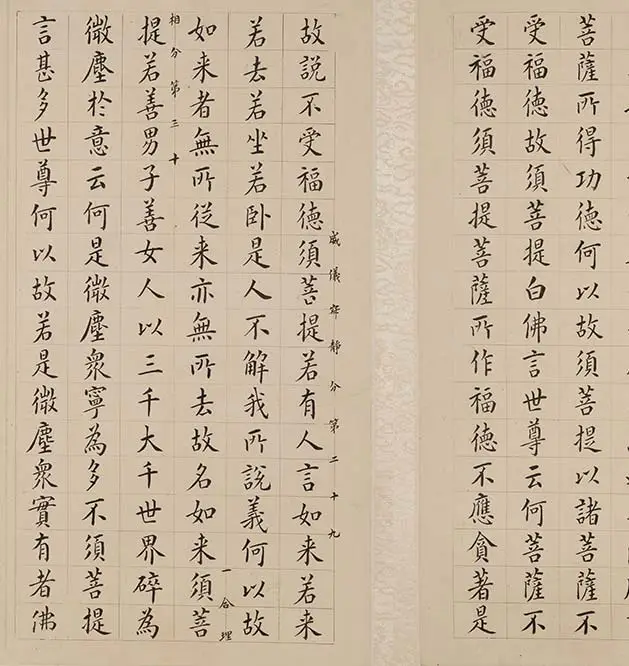 菩薩所得功德何以故須菩提以諸菩薩不
受福德故須菩提白佛言世尊云何菩薩不
受福德須菩提菩薩所作福德不應貪著是
威儀寂静分第二十九
故說不受福德須菩提若有人言如来若来
若去若坐若卧是人不解我所說義何以故
一合理
如来者無所從来亦無所去故名如来須菩
相分第三十
提若善男子善女人以三千大千世界碎為
微塵於意云何是微塵衆寧為多不須菩提
言甚多世尊何以故若是微塵衆實有者佛